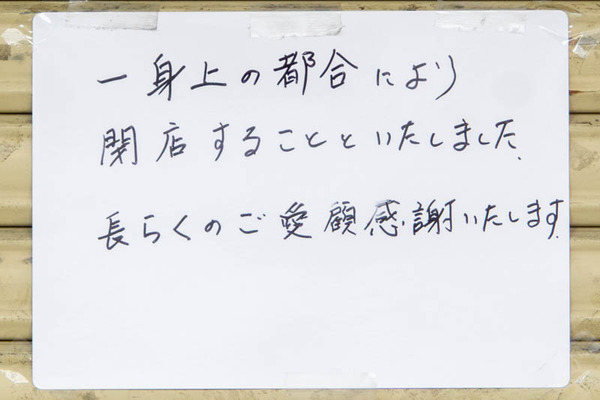 一身上の都合により
閉店することといたしました.
長らくのご愛顧感謝いたします.